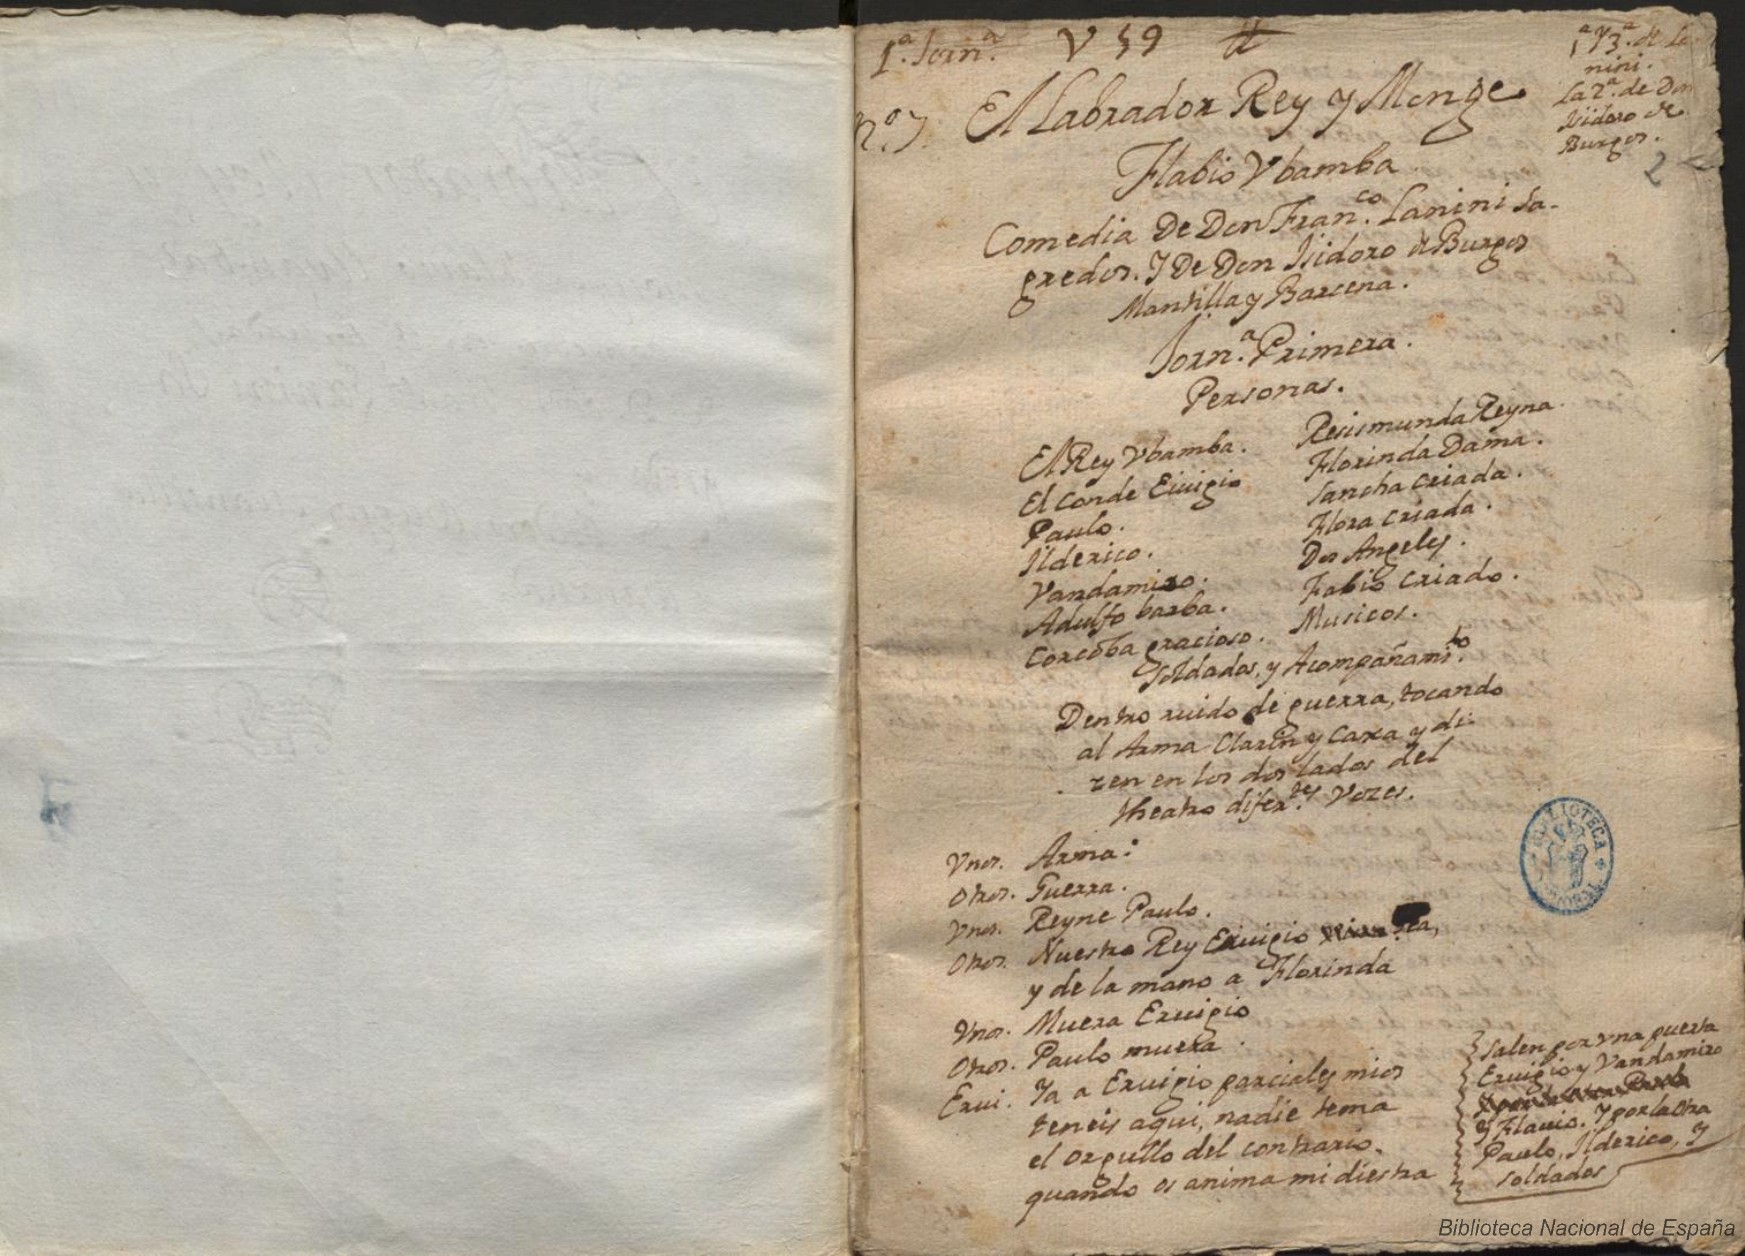 1.ª Jorn.ª V 59
1ª y 3ª de La
nini.
la 2ª de Don
Isidoro de
Burgos.
N.º 7. El Labrador Rey y Monge
2
Flabio Vbamba
Comedia De Don Fran.co Lanini Sa-
gredos. Y De Don Isidoro de Burgos
Mantilla y Barcena.
Jorn.ª Primera.
Personas.
El Rey Vbamba. Resismunda Reyna.
El Conde Eruigio Florinda Dama.
Paulo. Sancha criada.
Ilderico. Flora criada.
Vandamiro. Dos Angeles.
Adulfo barba. Fabio criado.
Corcoba gracioso. Musicos.
Soldados, y Acompañami.to
Dentro ruido de guerra, tocando
al Arma Clarin y Caxa y di-
zen en los dos lados del
theatro difer.tes Vozes.
Vnos. Arma.
Otros. Guerra.
Vnos. Reyne Paulo.
Otros. Nuestro Rey Eruigio sea,
y de la mano a Florinda
Vnos. Muera Eruigio
Otros. Paulo muera.
Erui. Ya a Eruigio parciales mios
teneis aqui, nadie tema
el orgullo del contrario.
quando os anima mi diestra
Salen por vna puerta
Eruigio y Vandamiro
y Flauio. Y por la otra
Paulo, Ilderico, Y
soldados
BIBLIOTECA
Biblioteca Nacional de España